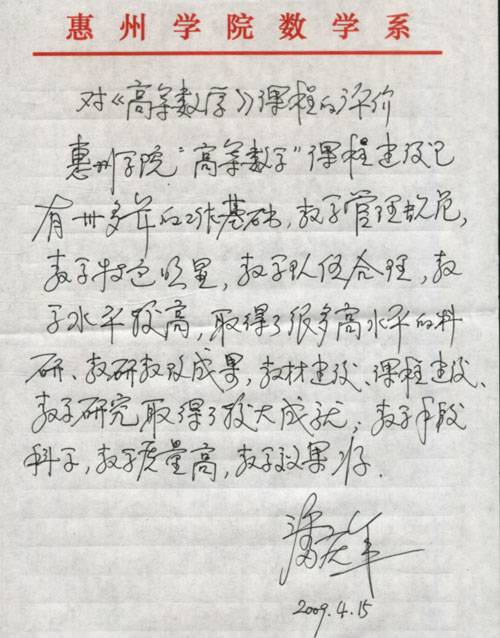 惠州学院数学系
对《高等数学》课程的评价
惠州学院“高等数学”课程建设已
有卅多年的工作基础,教学管理规范,
教学特色明显,教学队伍合理,教
学水平较高,取得了很多高水平的科
研、教研教改成果,教材建设、课程建设、
教学研究取得了较大成就;教学手段
科学,教学质量高,教学效果好.
2009.4.15